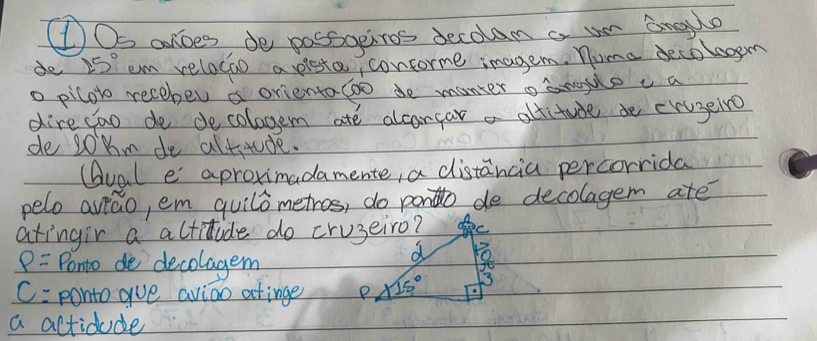 ① Os aviões de passageiros decolam a um ângulo
de 15° em relação a pista, conforme imagem. Numa decolagem
o piloto recebeu a orientação de manter o ângulo e a
direção de decolagem até alcançar a altitude de cruzeiro
de 10 Km de altitude.
Qual é aproximadamente, a distância percorrida
pelo avião, em quilômetros, do ponto de decolagem até
atingir a altitude do cruzeiro?
P = Ponto de decolagem
C = ponto que avião atinge
a altidude
C
d
10Km
P
15°